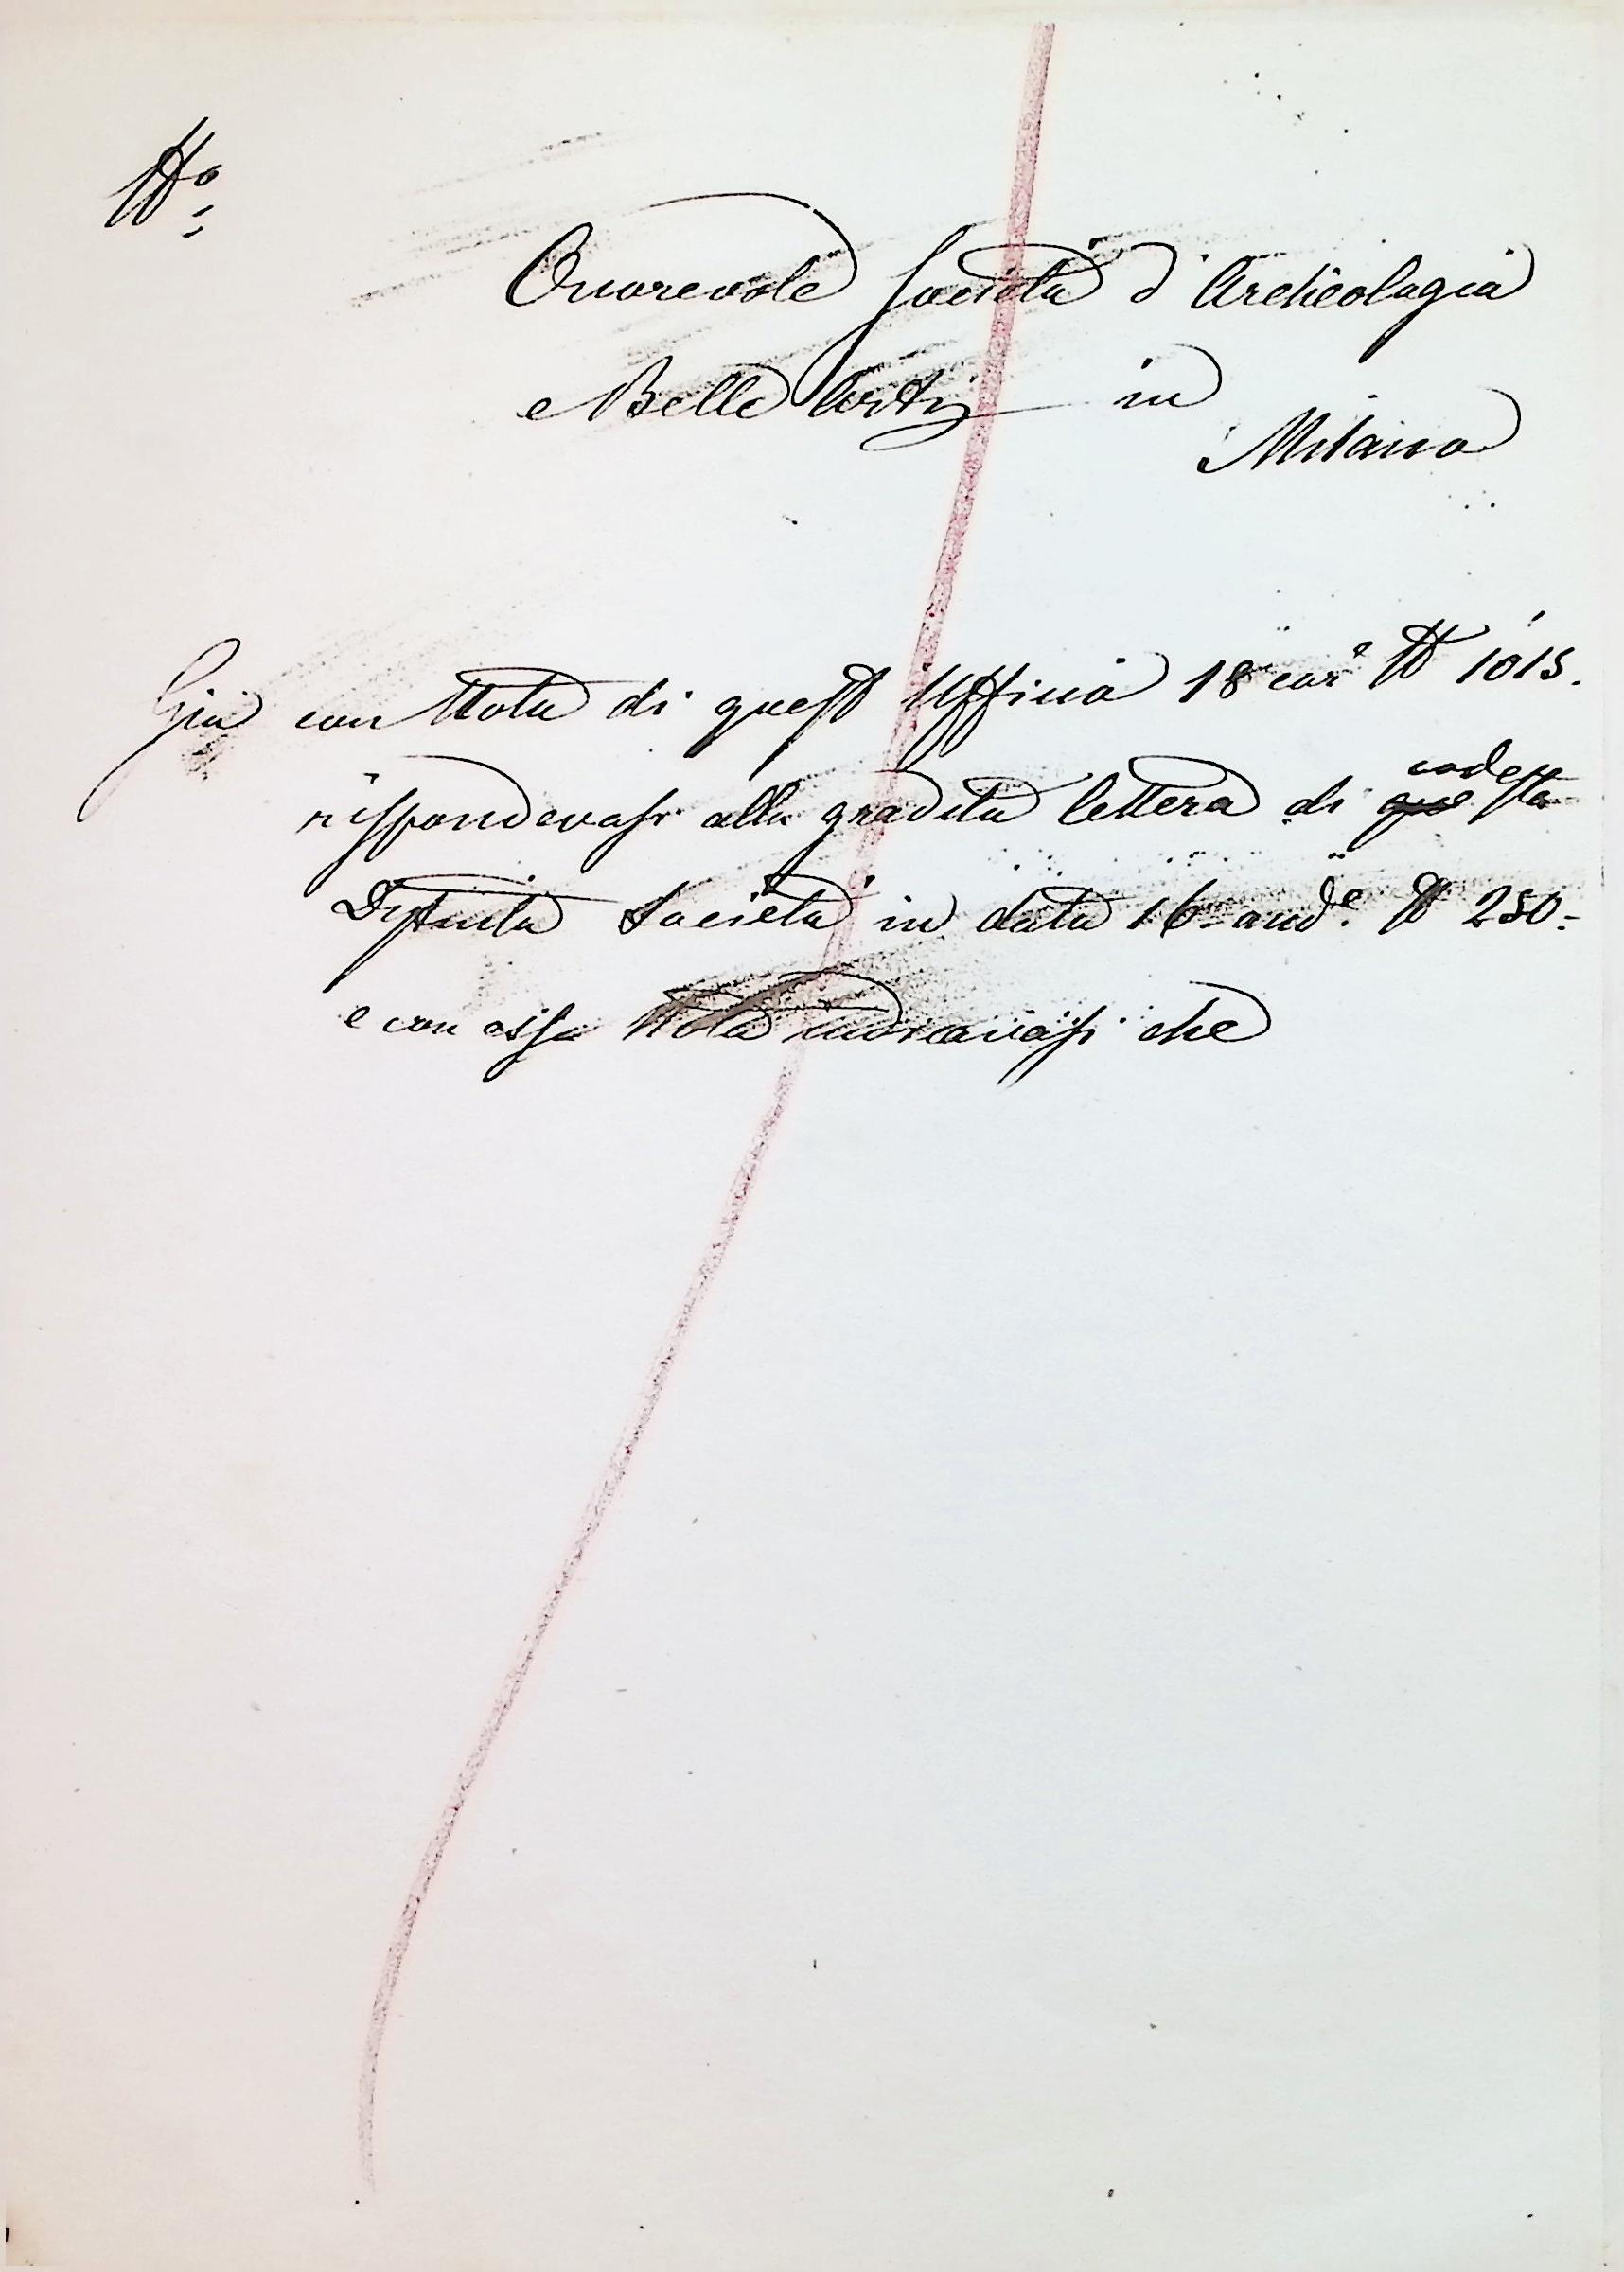 N.º
Onorevole Società d'Archeologia
e Belle Arti in
Milano
Già con Nota di quest'Ufficio 18 corr.e N 1015.
codesta
rispondevasi alla gradita lettera di que
Distinta Società in data 16 and.e N 250.
e con essa Nota indicavasi che